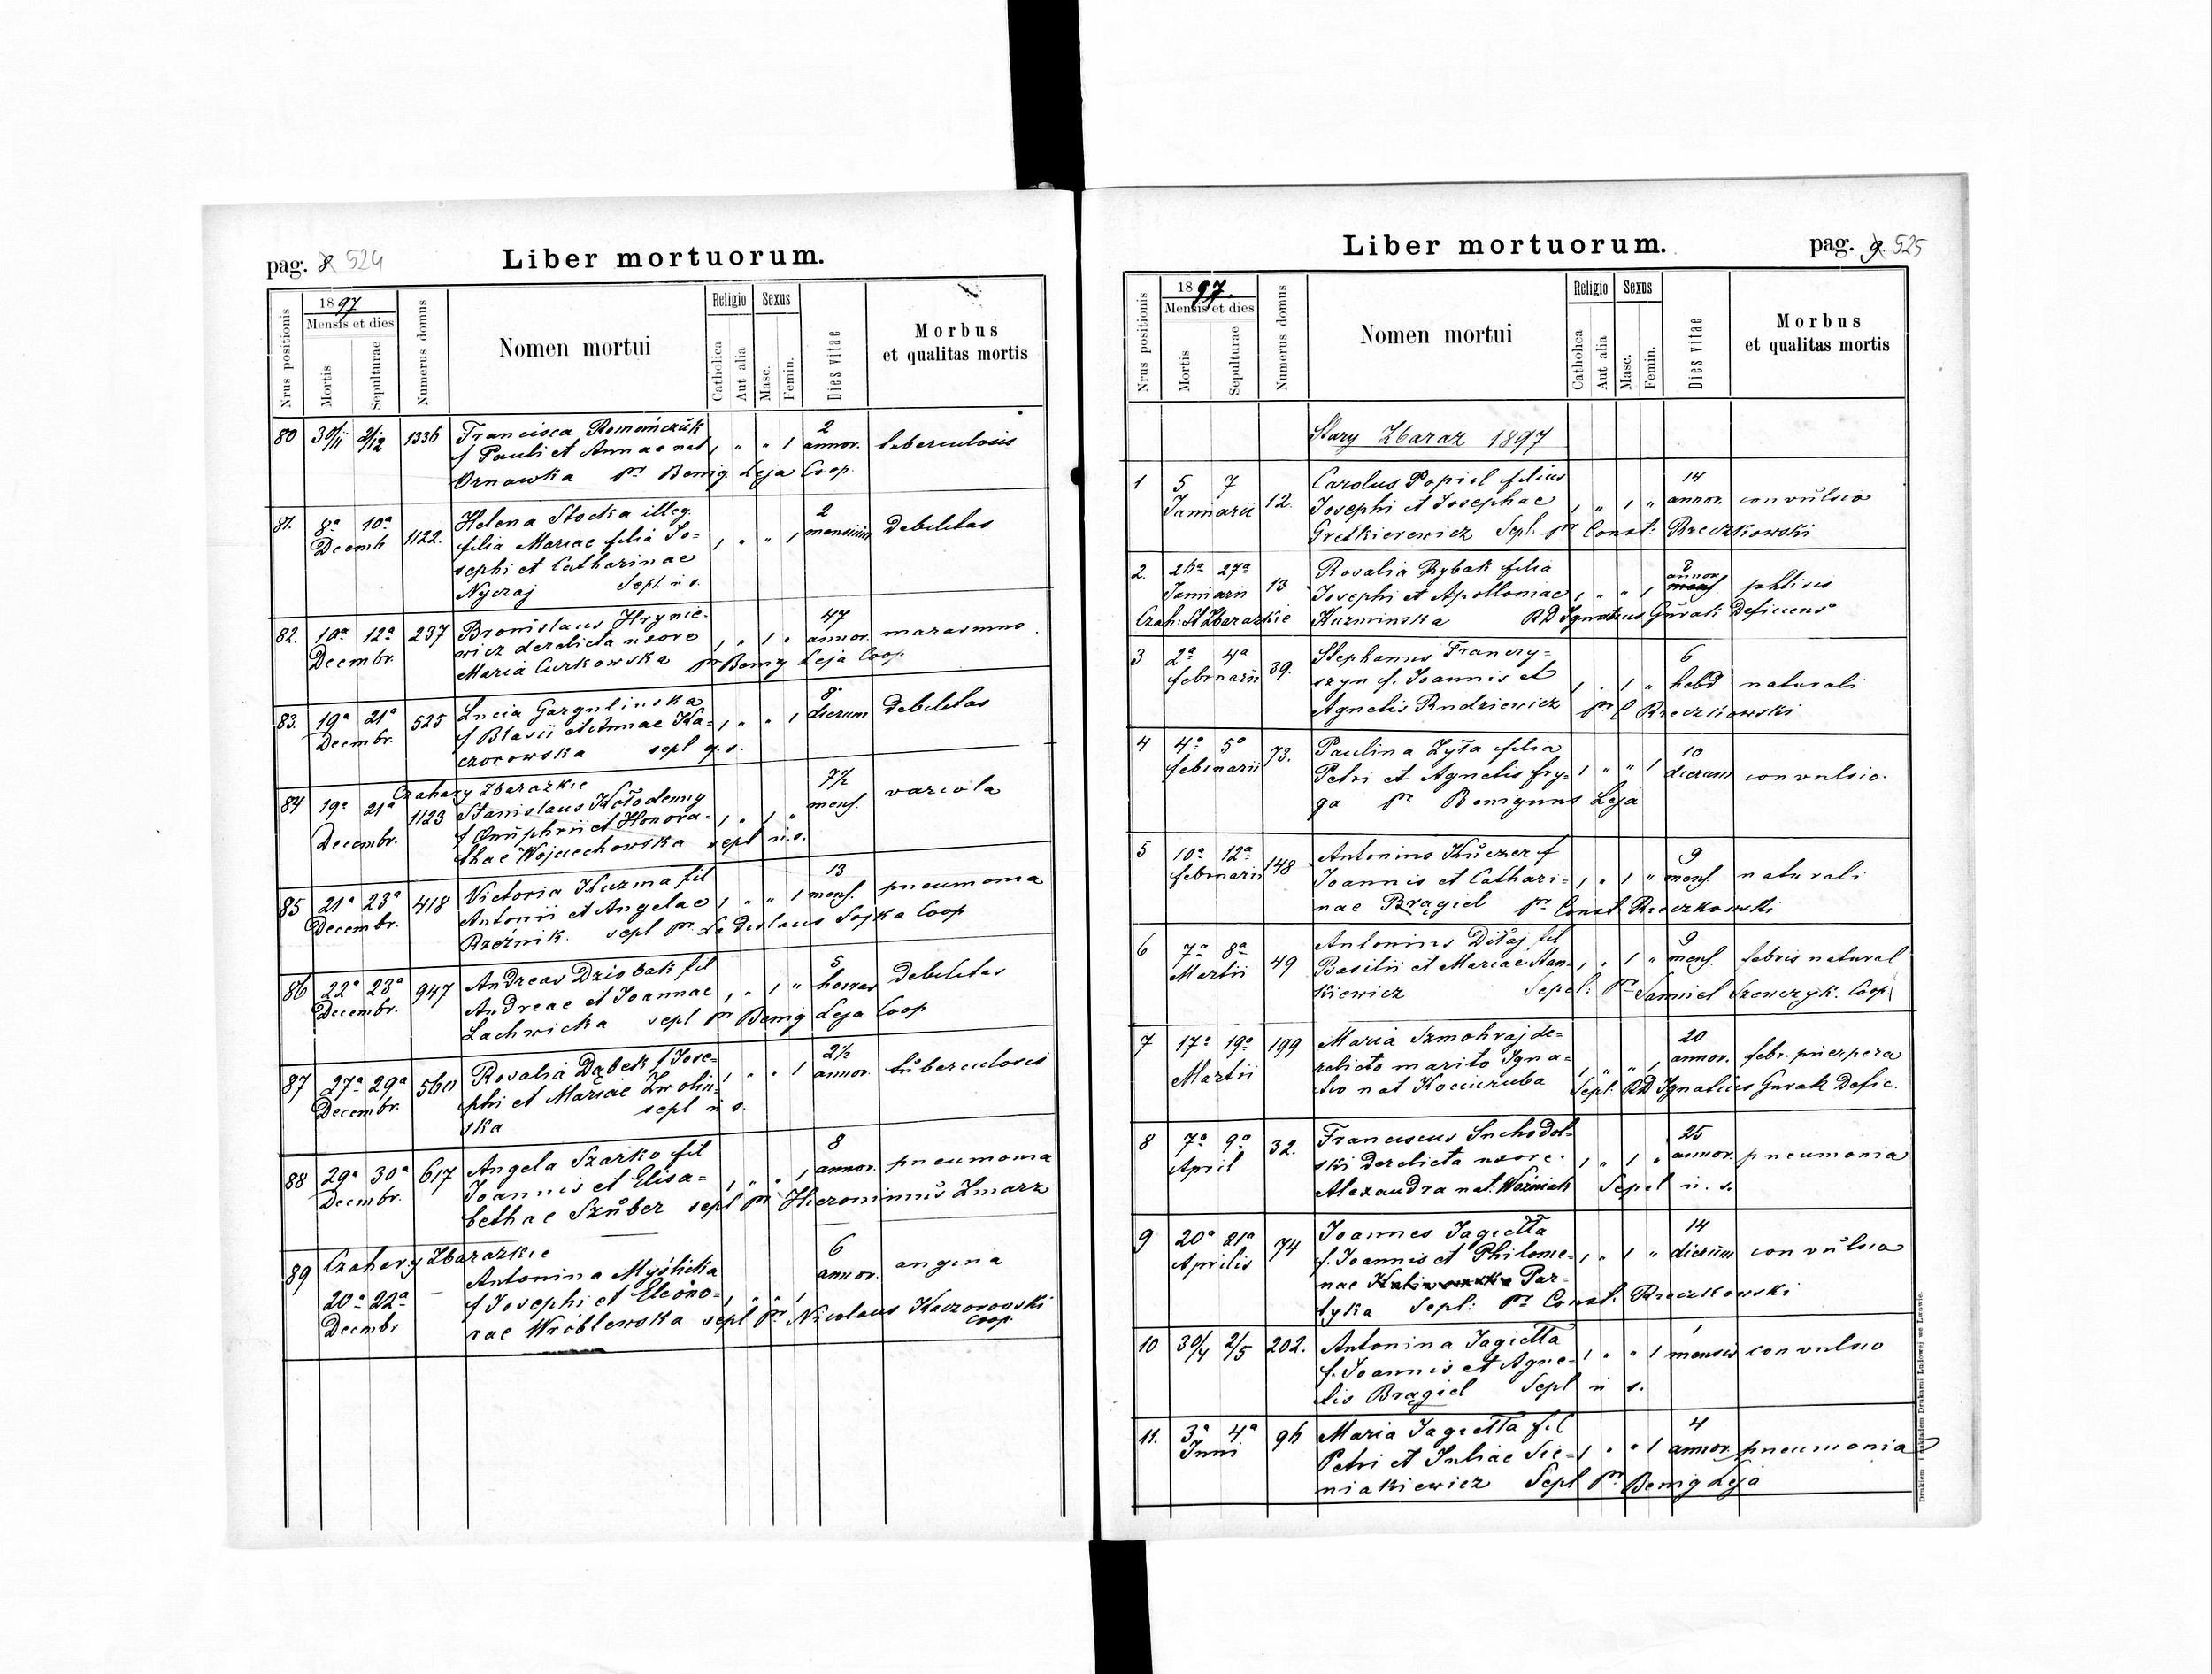 pag. 8 524
Liber mortuorum.
Nrus positionis
1897
Mensis et dies
Mortis
Sepulturae
Numerus domus
Nomen mortui
Religio
Catholica
Aut alia
Sexus
Masc.
Femin.
Dies vitae
Morbus
et qualitas mortis
80 30/11 2/12 1336 Francisca Romańczŭk 2
f Pauli et Annae nat , „ „ 1 annor. tuberculosis
Ornawka pr Benig. Leja Coop.
81. 8a 10a Helena Stocka illeg. 2
Decemb 1122. filia Mariae filia Jo= , „ „ , mensium debilitas
sephi et Catharinae
Nyczaj Sepl. u s.
82. 10a 12a 237 Bronislaus Hrynie- 47
Decembr. wicz derelicta uxore , „ 1 „ annor. marasmus
Maria Curkowska pr Benig Leja Coop.
83. 19a 21a 525 Lucia Gargulinska 8
Decembr. f Blasii et Annae Ka- , „ „ 1 dierum debilitas
czorowska sepl u. s.
Czahary Zbarazkie
84 19a 21a 1123 Stanislaus Kołodenny 7½
Decembr. f Onuphrii et Honora- , „ 1 „ mens. variola
thae Wojciechowska sepl u. s.
85 21a 23a 418 Victoria Kuzma fil 13
Decembr. Antonii et Angelae 1 „ „ 1 mens. pneumonia
Rzeźnik. sepl pr Ladislaus Sojka Coop
86 22a 23a 947 Andreas Dziobak fil 5
Decembr. Andreae et Joannae , „ 1 „ horas debilitas
Lachwicka sepl pr Benig Leja Coop
87 27a 29a 560 Rosalia Dąbek f Jose- 2½
Decembr. phi et Mariae Zwolin- , „ „ 1 annor. tŭberculosis
ska sepl u s.
88 29a 30a 617 Angela Szarko fil 8
Decembr. Joannis et Elisa- , „ „ , annor. pneumonia
bethae Szŭber sepl pr Hieronimus Zmarz
89 Czahary Zbarazkie
20a 22a – Antonina Myślicka 6
Decembr f Josephi et Eleono- , „ „ , annor. angina
rae Wróblewska sepl pr Nicolaus Kaczorowski
Coop
Liber mortuorum.
pag. 9. 525
Nrus positionis
1897.
Mensis et dies
Mortis
Sepulturae
Numerus domus
Nomen mortui
Religio
Catholica
Aut alia
Sexus
Masc.
Femin.
Dies vitae
Morbus
et qualitas mortis
Stary Zbaraz 1897
1 5 7 Carolus Popiel filius 14
Januarii 12. Josephi et Josephae , „ 1 „ annor. convŭlsio
Gretkierewicz Sepl. pr Const: Rzeczkowski
2. 26a 27a 13 Rosalia Rybak filia 2
Januarii Josephi et Apolloniae , „ „ 1 annor phtisis
Czah: St Zbarazkie Kuzminska RD Ignatius Gŭrak Deficiens
3 2a 4a Stephanus Franczy= 6
februarii 39. szyn f. Joannis et , „ 1 „ hebd naturali
Agnetis Rudziewicz pr C Rzeczkowski
4 4a 5a 73. Paulina Zyła filia 10
februarii Petri et Agnetis Fry- 1 „ „ 1 dierum convulsio.
ga pr Benignus Leja
5 10a 12a 148 Antonius Kŭczer f 9
februarii Joannis et Cathari- , „ 1 „ mens. naturali
nae Brągiel pr Const Rzeczkowski
6 7a 8a 49 Antonius Ditaj fil 9
Martii Basilii et Mariae Han- , „ 1 „ mens. febris natural
kiewicz Sepel: pr Samuel Szewczyk. Coop.
7 17a 19a 199 Maria Szmohraj de= 20
Martii relicto marito Igna= , „ „ , annor. febr. puerpera
tio nat Kociuruba Sepl: RD Ignatius Gurak Defic.
8 7a 9a 32. Franciscus Suchodol= 25
April ski derelicta uxore , „ 1 „ annor. pneumonia
Alexandra nat: Woźniak Sepel u. s.
9 20a 21a 74 Joannes Jagiełła 14
Aprilis f. Joannis et Philome- , „ 1 „ dierŭm convŭlsio
nae Par-
tyka Sepl: pr Const. Rzeczkowski
10 30/4 2/5 202. Antonina Jagiełła 1
f. Joannis et Agne- 1 „ „ 1 mensis convulsio
tis Brągiel Sepl u s.
11. 3a 4a 96 Maria Jagiełła fil 4
Juni Petri et Juliae Sie- 1 „ „ 1 annor. pneumonia
niakiewicz Sepl pr Benig Leja
Drukiem i nakładem Drukarni Ludowej we Lwowie.